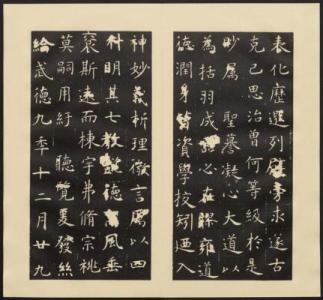 表化歷選列辟旁求遂古
克己思治曾何等級於是
眇属聖謩凝心大道以
為括羽成器必在膠雍道
德潤身皆資學校矧迺入
神妙義析理微言厲以四
科明其七教懿德高風垂
裕斯遠而棟宇弗脩宗祧
莫嗣用紆聽覽爰發絲
綸武德九年十二月廿九